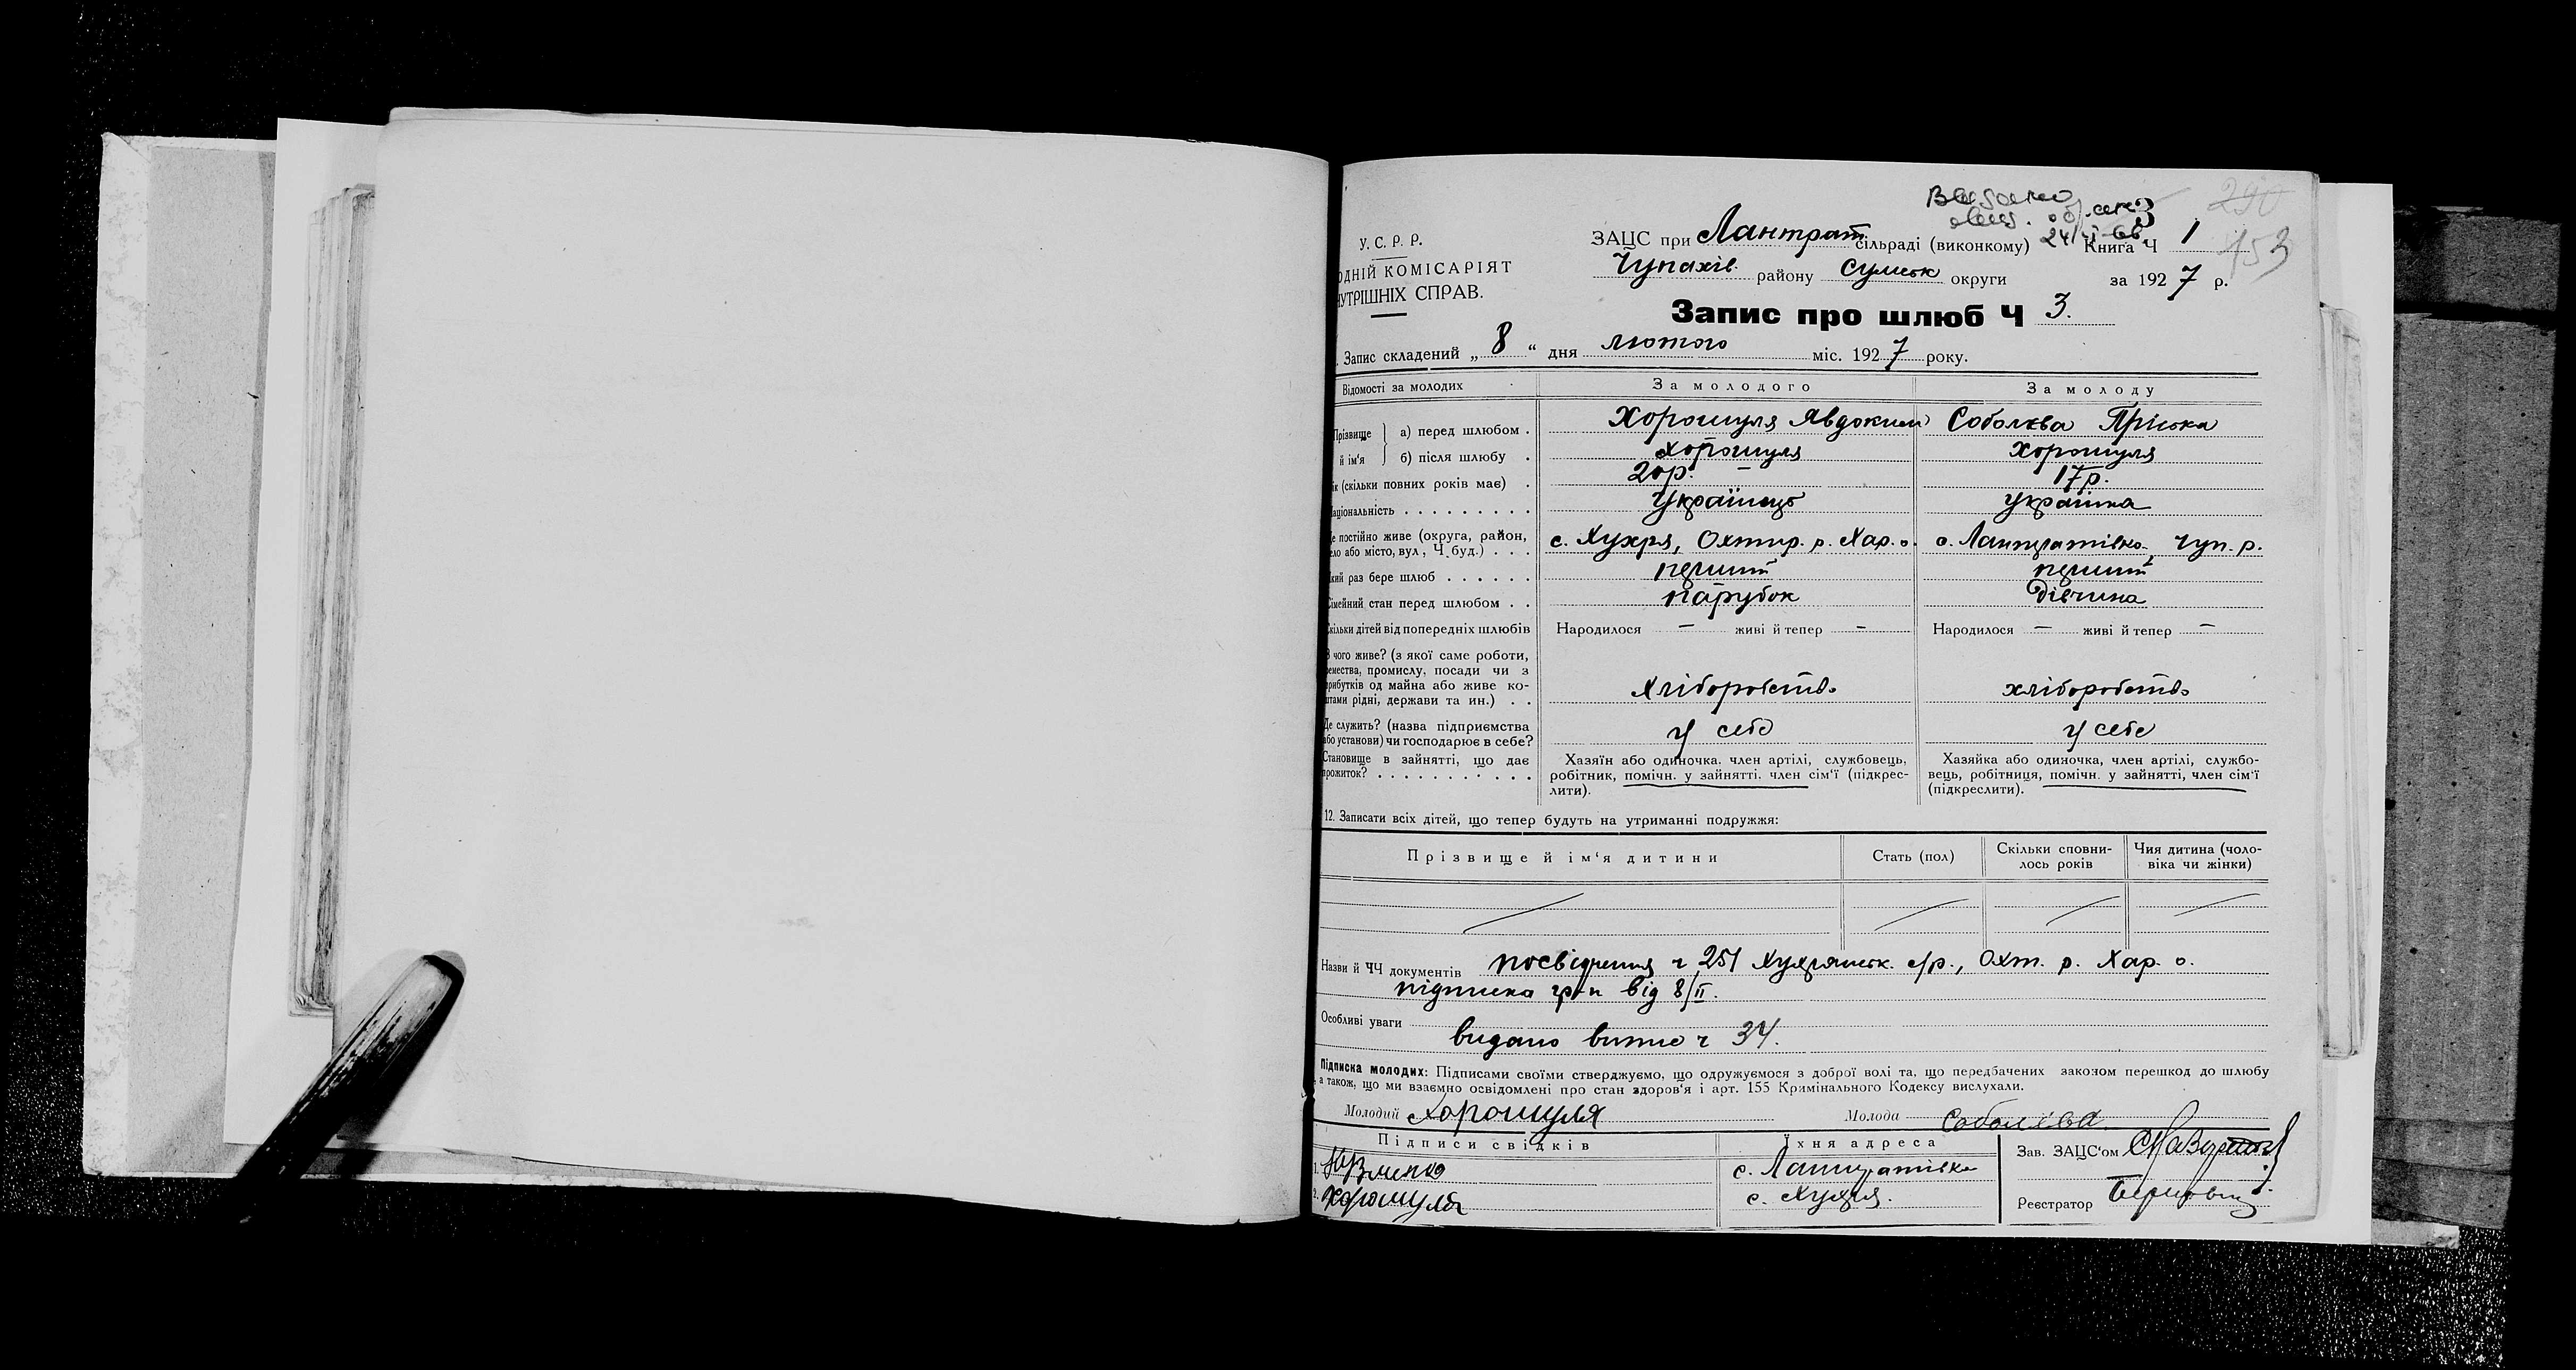 290
153
3
24/VI-66
У. С. Р. Р.
ОДНІЙ КОМІСАРІЯТ
НУТРІШНІХ СПРАВ.
ЗАЦС при Лантрат. сільраді (виконкому) Книга Ч 1
Чупахів. району Сумськ округи за 1927 р.
Запис про шлюб Ч 3.
Запис складений „8“ дня лютого міс. 1927 року.
Відомості за молодих За молодого За молоду
Прізвище й ім'я
а) перед шлюбом . Хорошуля Явдоким Соболєва Пріська
б) після шлюбу . Хорошуля Хорошуля
ік (скільки повних років має) . 20р. — 17р.
аціональність . . . . . . . . . Українець Українка
е постійно живе (округа, район,
ело або місто, вул., Ч. буд.) . . . с. Хухря, Охтир. р. Хар. о. с. Лантратівка, Чуп. р.
кий раз бере шлюб . . . . . . перший перший
Сімейний стан перед шлюбом . . парубок дівчина
кільки дітей від попередніх шлюбів Народилося — живі й тепер — Народилося — живі й тепер —
З чого живе? (з якої саме роботи,
ремества, промислу, посади чи з
рибутків од майна або живе ко-
штами рідні, держави та ин.) . . хліборобство хліборобство
Де служить? (назва підприємства
або установи) чи господарює в себе? у себе у себе
Становище в зайнятті, що дає
прожиток? . . . . . . . . . . .
Хазяїн або одиночка, член артілі, службовець,
робітник, помічн. у зайнятті, член сім'ї (підкрес-
лити).
Хазяйка або одиночка, член артілі, службо-
вець, робітниця, помічн. у зайнятті, член сім'ї
(підкреслити).
12. Записати всіх дітей, що тепер будуть на утриманні подружжя:
Прізвище й ім'я дитини Стать (пол) Скільки сповни-
лось років Чия дитина (чоло-
віка чи жінки)
Назви й ЧЧ документів посвідчення ч 251 Хухрянськ. с/р., Охт. р. Хар. о.
підписка гр-н від 8/II.
Особливі уваги
видано випис ч 34.
Підписка молодих: Підписами своїми стверджуємо, що одружуємося з доброї волі та, що передбачених законом перешкод до шлюбу
а також, що ми взаємно освідомлені про стан здоров'я і арт. 155 Кримінального Кодексу вислухали.
Молодий Хорошуля Молода Соболєва
Підписи свідків Їхня адреса
1. с. Лантратівка
2. Хорошуля с. Хухря.
Зав. ЗАЦС'ом
Реєстратор